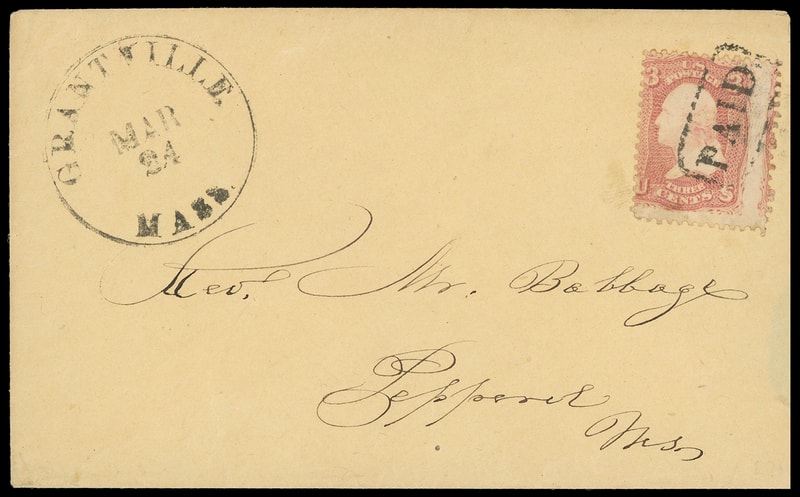 GRANTVILLE.
MAR
24
MASS.
3 U.S. POSTAGE 3
PAID
U THREE CENTS S
Rev. Mr. Babbage
Pepperel
Ms